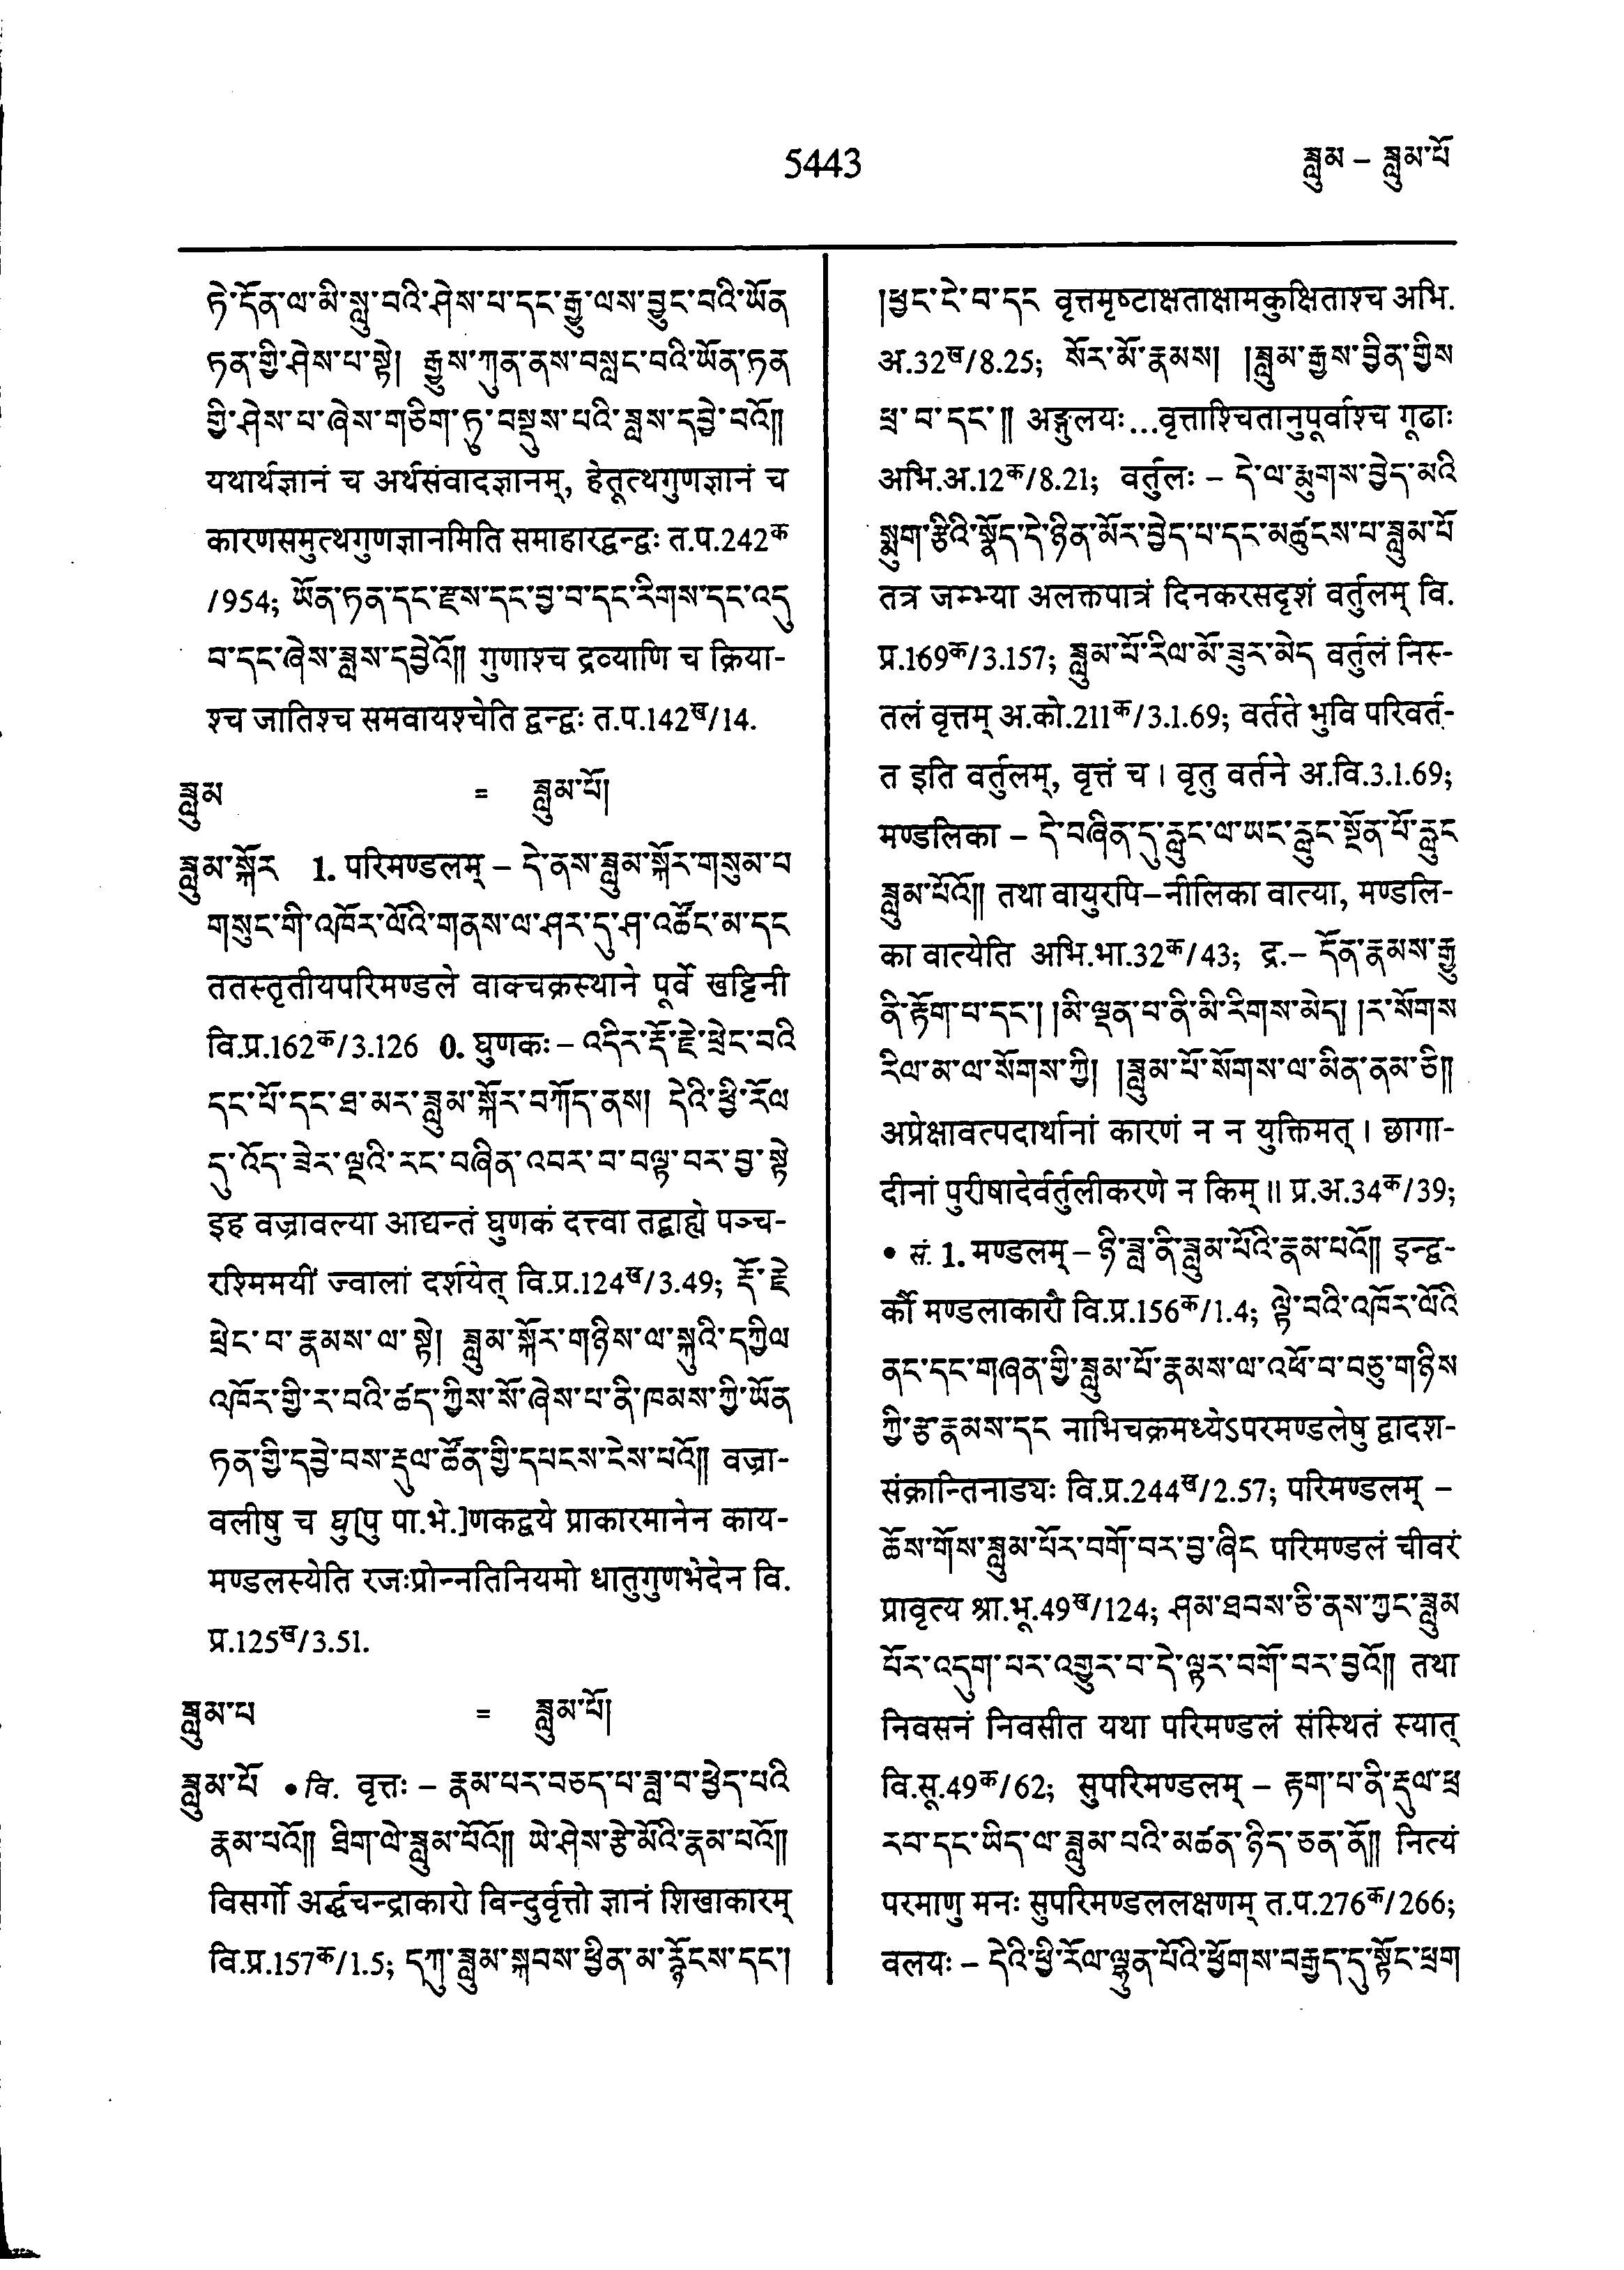 5443
ཟླུམ – ཟླུམ་པོ
ཏེ་དོན་ལ་མི་སླུ་བའི་ཤེས་པ་དང་རྒྱུ་ལས་བྱུང་བའི་ཡོན
ཏན་གྱི་ཤེས་པ་སྟེ། རྒྱུས་ཀུན་ནས་བསླང་བའི་ཡོན་ཏན
གྱི་ཤེས་པ་ཞེས་གཅིག་ཏུ་བསྡུས་པའི་ཟླས་དབྱེ་བའོ༎
यथार्थज्ञानं च अर्थसंवादज्ञानम्, हेतूत्थगुणज्ञानं च
कारणसमुत्थगुणज्ञानमिति समाहारद्वन्द्वः त.प.242क
/954; ཡོན་ཏན་དང་རྫས་དང་བྱ་བ་དང་རིགས་དང་འདུ
བ་དང་ཞེས་ཟླས་དབྱེའོ༎ गुणाश्च द्रव्याणि च क्रिया-
श्च जातिश्च समवायश्चेति द्वन्द्वः त.प.142ख/14.
ཟླུམ = ཟླུམ་པོ།
ཟླུམ་སྐོར 1. परिमण्डलम् – དེ་ནས་ཟླུམ་སྐོར་གསུམ་པ
གསུང་གི་འཁོར་ལོའི་གནས་ལ་ཤར་དུ་ཤ་འཚོང་མ་དང
ततस्तृतीयपरिमण्डले वाक्चक्रस्थाने पूर्वे खट्टिनी
वि.प्र.162क/3.126 0. घुणकः – འདིར་རྡོ་རྗེ་ཕྲེང་བའི
དང་པོ་དང་ཐ་མར་ཟླུམ་སྐོར་བཀོད་ནས། དེའི་ཕྱི་རོལ
དུ་འོད་ཟེར་ལྔའི་རང་བཞིན་འབར་བ་བལྟ་བར་བྱ་སྟེ
इह वज्रावल्या आद्यन्तं घुणकं दत्त्वा तद्बाह्ये पञ्च-
रश्मिमयीं ज्वालां दर्शयेत् वि.प्र.124ख/3.49; རྡོ་རྗེ
ཕྲེང་བ་རྣམས་ལ་སྟེ། ཟླུམ་སྐོར་གཉིས་ལ་སྐུའི་དཀྱིལ
འཁོར་གྱི་ར་བའི་ཚད་ཀྱིས་སོ་ཞེས་པ་ནི་ཁམས་ཀྱི་ཡོན
ཏན་གྱི་དབྱེ་བས་རྡུལ་ཚོན་གྱི་དཔངས་ངེས་པའོ༎ वज्रा-
वलीषु च घु[पु पा.भे.]णकद्वये प्राकारमानेन काय-
मण्डलस्येति रजःप्रोन्नतिनियमो धातुगुणभेदेन वि.
प्र.125ख/3.51.
ཟླུམ་པ = ཟླུམ་པོ།
ཟླུམ་པོ • वि. वृत्तः – རྣམ་པར་བཅད་པ་ཟླ་བ་ཕྱེད་པའི
རྣམ་པའོ༎ ཐིག་ལེ་ཟླུམ་པོའོ༎ ཡེ་ཤེས་རྩེ་མོའི་རྣམ་པའོ༎
विसर्गो अर्द्धचन्द्राकारो बिन्दुर्वृत्तो ज्ञानं शिखाकारम्
वि.प्र.157क/1.5; དཀུ་ཟླུམ་སྐབས་ཕྱིན་མ་རྙོངས་དང་།
།ཕྱང་ངེ་བ་དང वृत्तमृष्टाक्षताक्षामकुक्षिताश्च अभि.
अ.32ख/8.25; སོར་མོ་རྣམས། །ཟླུམ་རྒྱས་བྱིན་གྱིས
ཕྲ་བ་དང་༎ अङ्गुलयः...वृत्ताश्चितानुपूर्वाश्च गूढाः
अभि.अ.12क/8.21; वर्तुलः – དེ་ལ་རྨུགས་བྱེད་མའི
སྨུག་རྩིའི་སྣོད་དེ་ཉིན་མོར་བྱེད་པ་དང་མཚུངས་པ་ཟླུམ་པོ
तत्र जम्भ्या अलक्तपात्रं दिनकरसदृशं वर्तुलम् वि.
प्र.169क/3.157; ཟླུམ་པོ་རིལ་མོ་ཟུར་མེད वर्तुलं निस्-
तलं वृत्तम् अ.को.211क/3.1.69; वर्तते भुवि परिवर्त-
त इति वर्तुलम्, वृत्तं च। वृतु वर्तने अ.वि.3.1.69;
मण्डलिका – དེ་བཞིན་དུ་རླུང་ལ་ཡང་རླུང་སྔོན་པོ་རླུང
ཟླུམ་པོའོ༎ तथा वायुरपि–नीलिका वात्या, मण्डलि-
का वात्येति अभि.भा.32क/43; द्र.– དོན་རྣམས་རྒྱུ
ནི་རྟོག་པ་དང་། །མི་ལྡན་པ་ནི་མི་རིགས་མེད། །ར་སོགས
རིལ་མ་ལ་སོགས་ཀྱི། །ཟླུམ་པོ་སོགས་ལ་མིན་ནམ་ཅི༎
अप्रेक्षावत्पदार्थानां कारणं न न युक्तिमत्। छागा-
दीनां पुरीषादेर्वर्तुलीकरणे न किम्॥ प्र.अ.34क/39;
• सं. 1. मण्डलम् – ཉི་ཟླ་ནི་ཟླུམ་པོའི་རྣམ་པའོ༎ इन्द्व-
र्कौ मण्डलाकारौ वि.प्र.156क/1.4; ལྟེ་བའི་འཁོར་ལོའི
ནང་དང་གཞན་གྱི་ཟླུམ་པོ་རྣམས་ལ་འཕོ་བ་བཅུ་གཉིས
ཀྱི་རྩ་རྣམས་དང नाभिचक्रमध्येऽपरमण्डलेषु द्वादश-
संक्रान्तिनाड्यः वि.प्र.244ख/2.57; परिमण्डलम् –
ཆོས་གོས་ཟླུམ་པོར་བགོ་བར་བྱ་ཞིང परिमण्डलं चीवरं
प्रावृत्य श्रा.भू.49ख/124; ཤམ་ཐབས་ཅི་ནས་ཀྱང་ཟླུམ
པོར་འདུག་པར་འགྱུར་བ་དེ་ལྟར་བགོ་བར་བྱའོ༎ तथा
निवसनं निवसीत यथा परिमण्डलं संस्थितं स्यात्
वि.सू.49क/62; सुपरिमण्डलम् – རྟག་པ་ནི་རྡུལ་ཕྲ
རབ་དང་ཡིད་ལ་ཟླུམ་བའི་མཚན་ཉིད་ཅན་ནོ༎ नित्यं
परमाणु मनः सुपरिमण्डललक्षणम् त.प.276क/266;
वलयः – དེའི་ཕྱི་རོལ་ལྷུན་པོའི་ཕྱོགས་བརྒྱད་དུ་སྟོང་ཕྲག